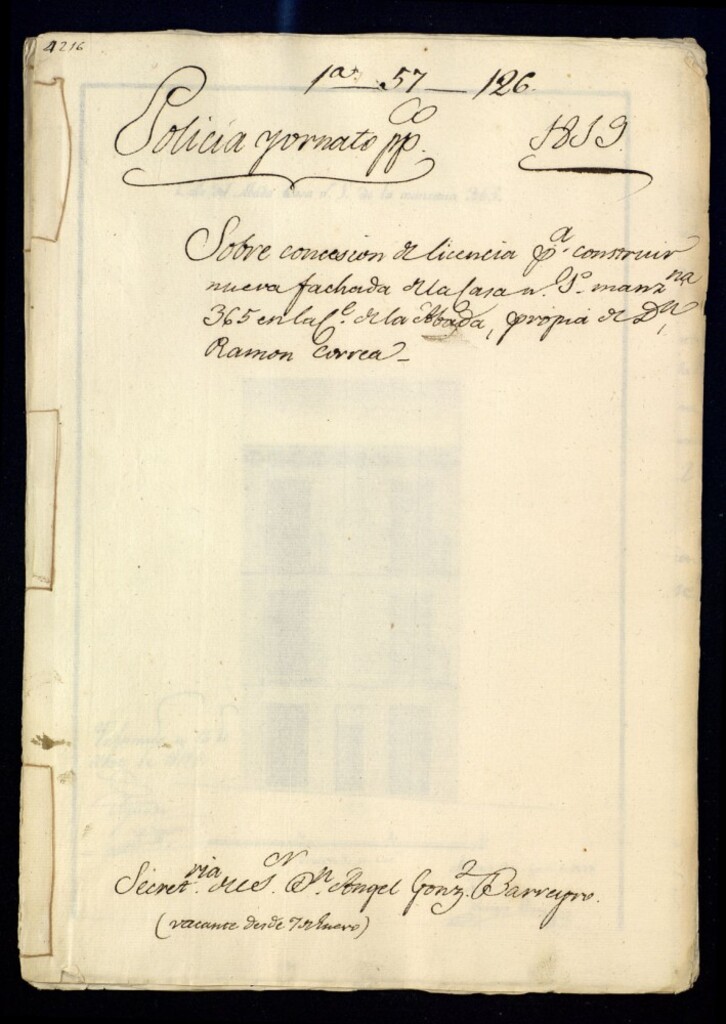 4216
1ª 57 126
Policía y ornato pp.co 1819
Sobre concesion de licencia pa. construir
nueva fachada de la Casa n.º manzna
365 en la Ce. de la Abada, propia de Dn.
Ramon Correa
Secretria del Sor Dn. Angel Gonz. Barreyro.
(vacante desde 7 de Enero)